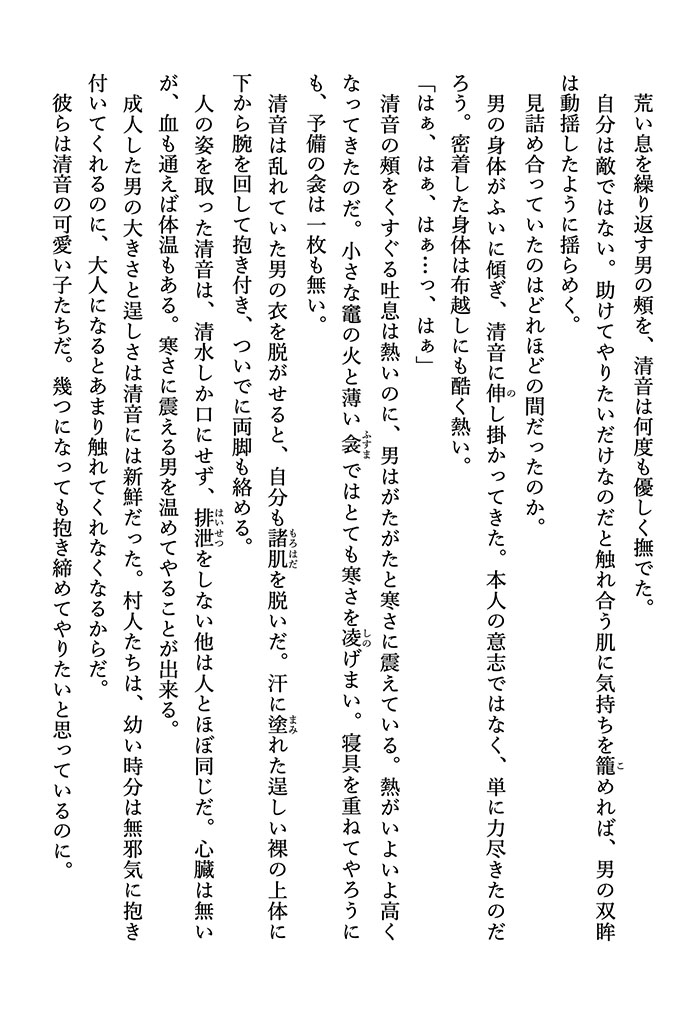 荒い息を繰り返す男の頰を、清音は何度も優しく撫でた。
自分は敵ではない。助けてやりたいだけなのだと触れ合う肌に気持ちを籠めれば、男の双眸
は動揺したように揺らめく。
見詰め合っていたのはどれほどの間だったのか。
男の身体がふいに傾ぎ、清音に伸し掛かってきた。本人の意志ではなく、単に力尽きたのだ
ろう。密着した身体は布越しにも酷く熱い。
「はぁ、はぁ、はぁ…っ、はぁ」
清音の頰をくすぐる吐息は熱いのに、男はがたがたと寒さに震えている。熱がいよいよ高く
なってきたのだ。小さな竈の火と薄い衾ではとても寒さを凌げまい。寝具を重ねてやろうに
も、予備の衾は一枚も無い。
清音は乱れていた男の衣を脱がせると、自分も諸肌を脱いだ。汗に塗れた逞しい裸の上体に
下から腕を回して抱き付き、ついでに両脚も絡める。
人の姿を取った清音は、清水しか口にせず、排泄をしない他は人とほぼ同じだ。心臓は無い
が、血も通えば体温もある。寒さに震える男を温めてやることが出来る。
成人した男の大きさと逞しさは清音には新鮮だった。村人たちは、幼い時分は無邪気に抱き
付いてくれるのに、大人になるとあまり触れてくれなくなるからだ。
彼らは清音の可愛い子たちだ。幾つになっても抱き締めてやりたいと思っているのに。